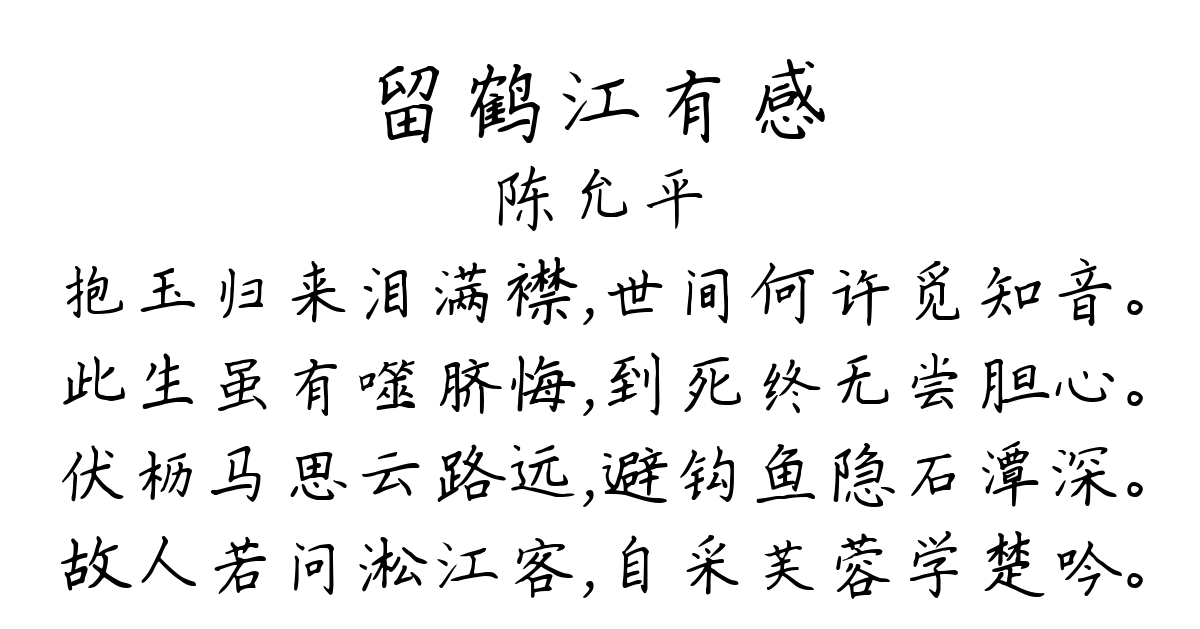 留鹤江有感
陈允平
抱玉归来泪满襟,世间何许觅知音。
此生虽有噬脐悔,到死终无尝胆心。
伏枥马思云路远,避钩鱼隐石潭深。
故人若问淞江客,自采芙蓉学楚吟。